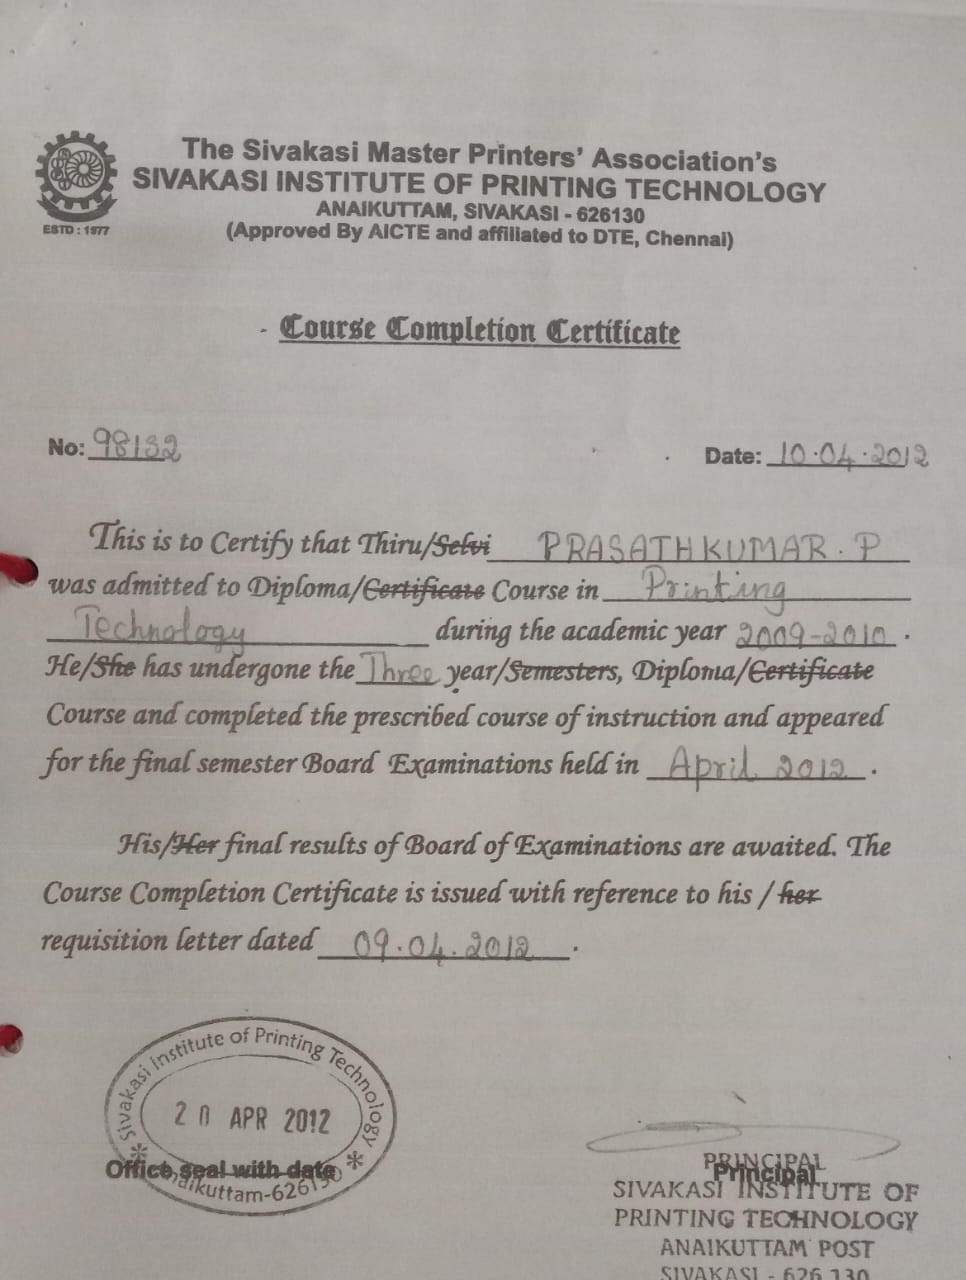 The Sivakasi Master Printers' Association's
SIVAKASI INSTITUTE OF PRINTING TECHNOLOGY
ANAIKUTTAM, SIVAKASI - 626130
(Approved By AICTE and affiliated to DTE, Chennai)
ESTD : 1977
Course Completion Certificate
No: 98132
Date: 10.04.2012
This is to Certify that Thiru/Selvi PRASATHKUMAR.P
was admitted to Diploma/Certificate Course in Printing
Technology during the academic year 2009-2010.
He/She has undergone the Three year/Semesters, Diploma/Certificate
Course and completed the prescribed course of instruction and appeared
for the final semester Board Examinations held in April 2012.
His/Her final results of Board of Examinations are awaited. The
Course Completion Certificate is issued with reference to his / her
requisition letter dated 09.04.2012.
Sivakasi Institute of Printing Technology
20 APR 2012
Office seal with date
Anaikuttam-626130
PRINCIPAL
Principal
SIVAKASI INSTITUTE OF
PRINTING TECHNOLOGY
ANAIKUTTAM POST
SIVAKASI - 626 130